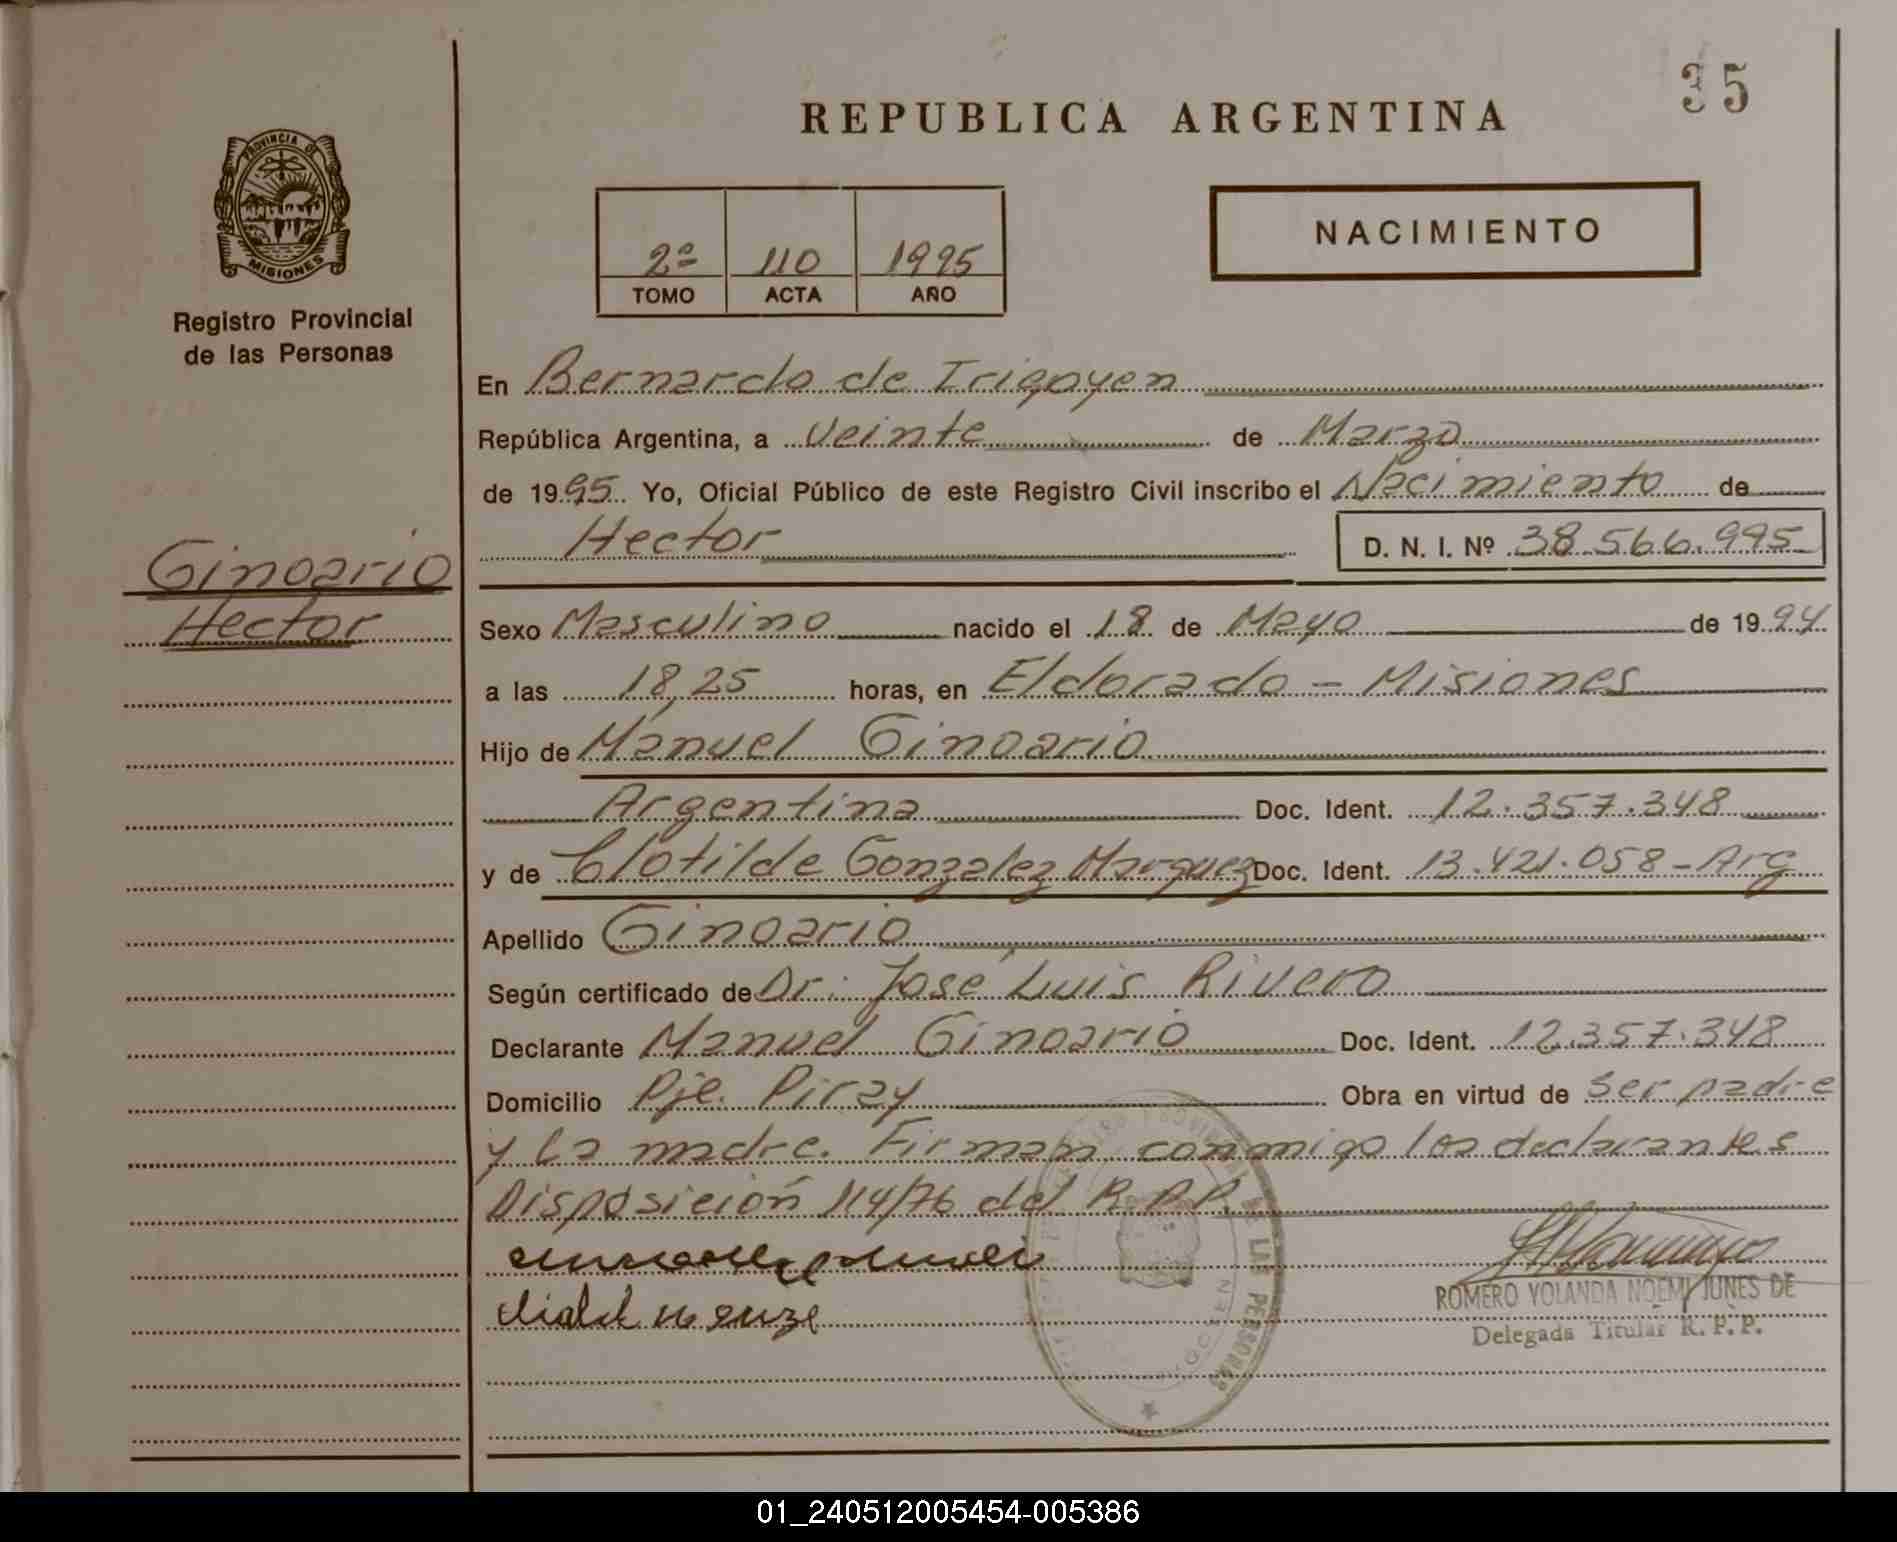 35
REPUBLICA ARGENTINA
PROVINCIA DE
MISIONES
Registro Provincial
de las Personas
NACIMIENTO
2º 110 1995
TOMO ACTA AÑO
En Bernardo de Irigoyen
República Argentina, a Veinte de Marzo
de 1995 Yo, Oficial Público de este Registro Civil inscribo el Nacimiento de
Hector D. N. I. Nº 38.566.995
Ginoario
Hector
Sexo Masculino nacido el 18 de Mayo de 1994
a las 18,25 horas, en Eldorado - Misiones
Hijo de Manuel Ginoario
Argentina Doc. Ident. 12.357.348
y de Clotilde Gonzalez Marquez Doc. Ident. 13.421.058 - Arg
Apellido Ginoario
Según certificado de Dr. José Luis Rivero
Declarante Manuel Ginoario Doc. Ident. 12.357.348
Domicilio Pje. Piray Obra en virtud de ser padre
y la madre. Firman conmigo los declarantes
Disposición 114/76 del R.P.P.
DE LAS PERSONAS
ROMERO YOLANDA NOEMI JUNES DE
Delegada Titular R. P. P.
01_240512005454-005386